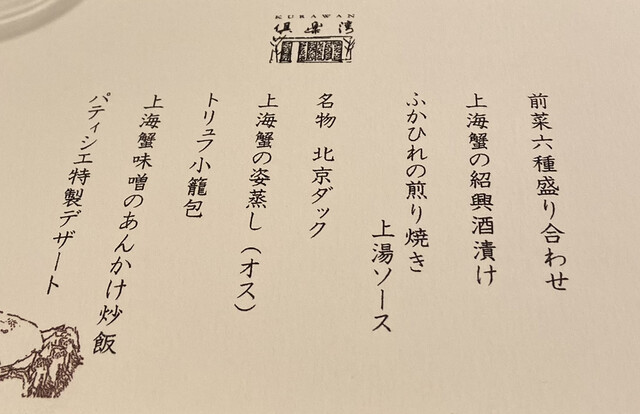 KURAWAN
倶樂湾
前菜六種盛り合わせ
上海蟹の紹興酒漬け
ふかひれの煎り焼き
上湯ソース
名物 北京ダック
上海蟹の姿蒸し（オス）
トリュフ小籠包
上海蟹味噌のあんかけ炒飯
パティシエ特製デザート